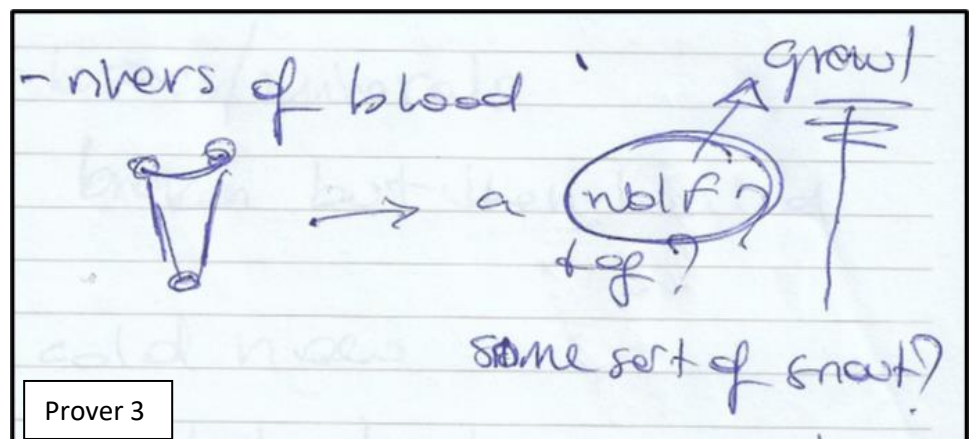 -rivers of blood
growl
a wolf?
tog?
some sort of snout?
Prover 3